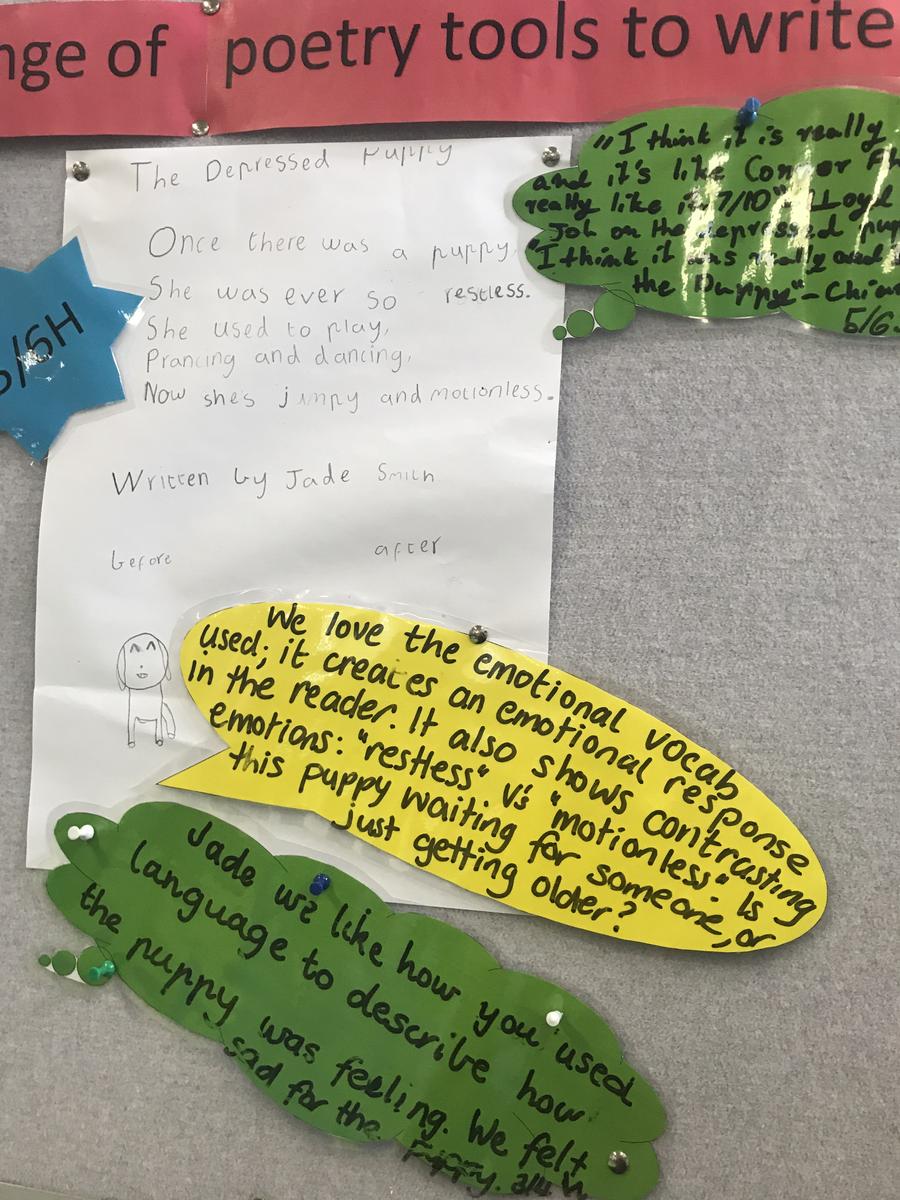 nge of poetry tools to write
The Depressed Puppy
Once there was a puppy
She was ever so restless.
She used to play,
Prancing and dancing,
Now she's jumpy and motionless.
Written by Jade Smith
before after
5/6H
"I think it is really
and it's like Connor
really like it. 7/10"
Job on the depressed
"I think it was really
the Puppy" -
5/6
We love the emotional vocab
used; it creates an emotional response
in the reader. It also shows contrasting
emotions: "restless" v's "motionless". Is
this puppy waiting for someone, or
just getting older?
Jade we like how you used
language to describe how
the puppy was feeling. We felt
sad for the Puppy.